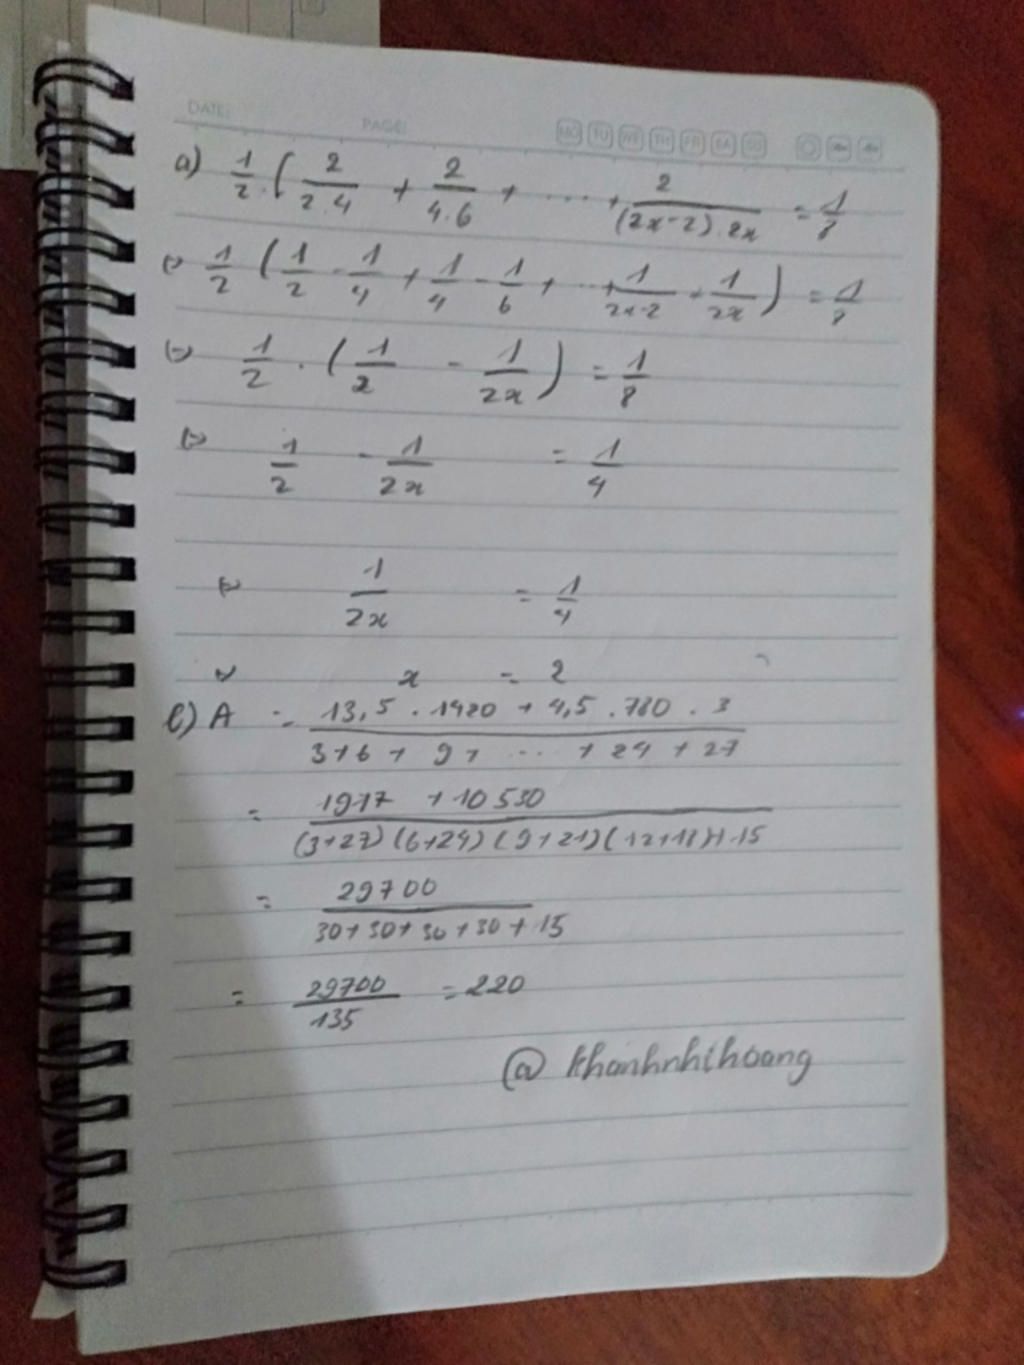 DATE: PAGE: MO TU WE TH FR SA SU
a) 1/2 . ( 2/(2.4) + 2/(4.6) + .... + 2/((2x-2).2x) = 1/8
(=) 1/2 ( 1/2 - 1/4 + 1/4 - 1/6 + ... + 1/(2x-2) - 1/(2x) ) = 1/8
(=) 1/2 . ( 1/2 - 1/(2x) ) = 1/8
(=) 1/2 - 1/(2x) = 1/4
(=) 1/(2x) = 1/4
x = 2
b) A = (13,5 . 1420 + 4,5 . 780 . 3)/(3+6+9+ ... +24+27)
= (1917 + 10530)/((3+27)(6+24)(9+21)(12+18)+15)
= 29700/(30+30+30+30+15)
= 29700/135 = 220
@ khanhnhihoang